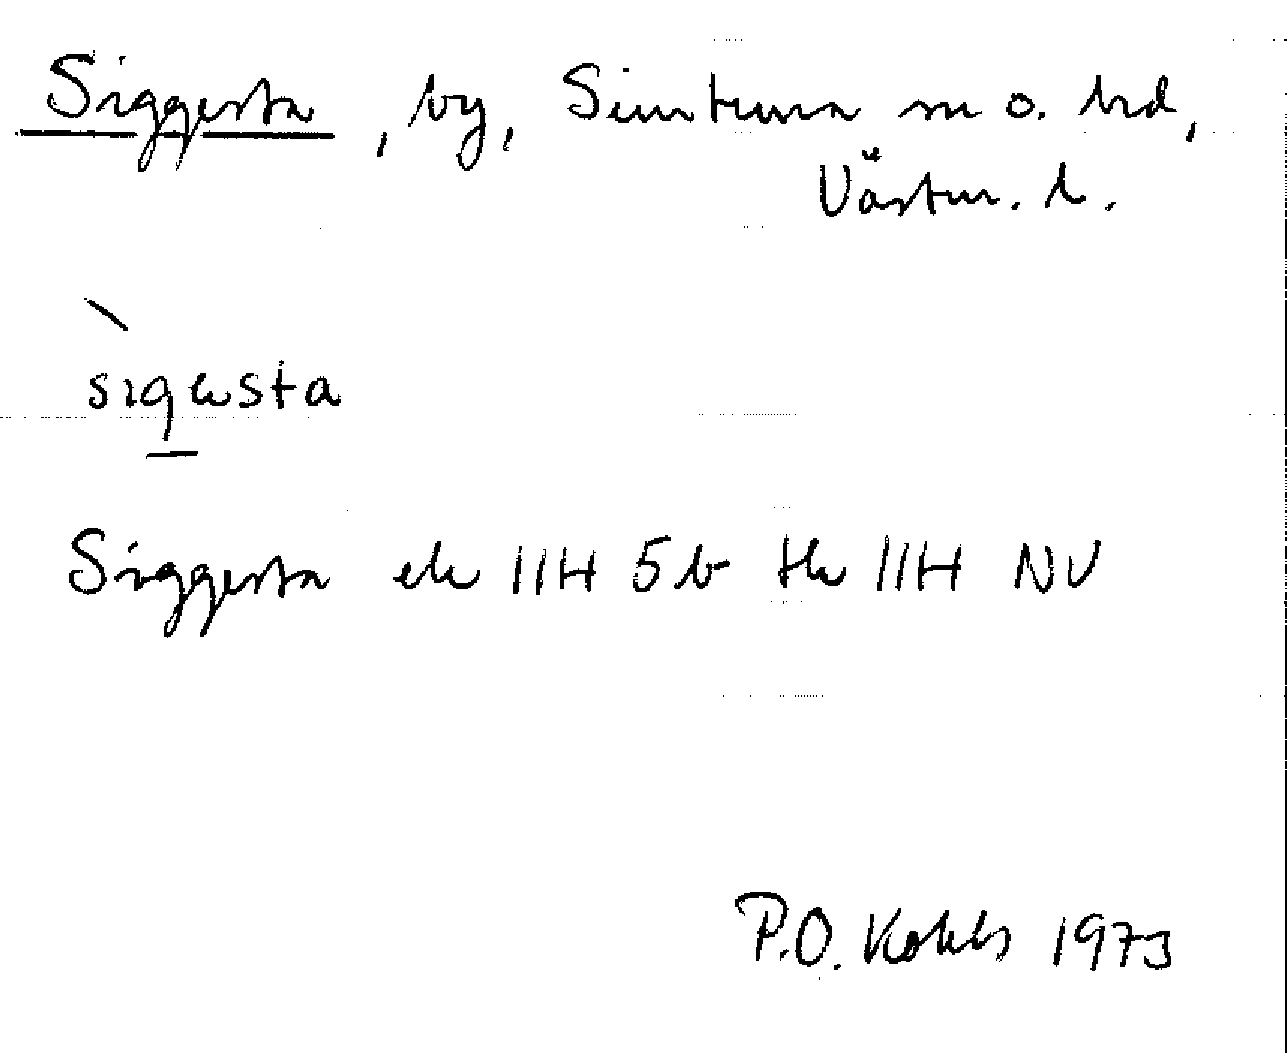 Siggesta, by, Simtuna sn o. hd,
Västm. l.
sigɯsta
Siggesta ek 11H 5b tk 11H NV
P.O. 1973